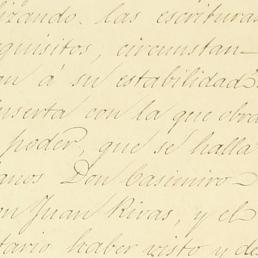 lizando las escrituras
quisitos, circunstan-
on á su estabilidad
inserta con la que obra
poder, que se halla
anos Don Casimiro
on Juan Rivas, y el
tario haber visto y de